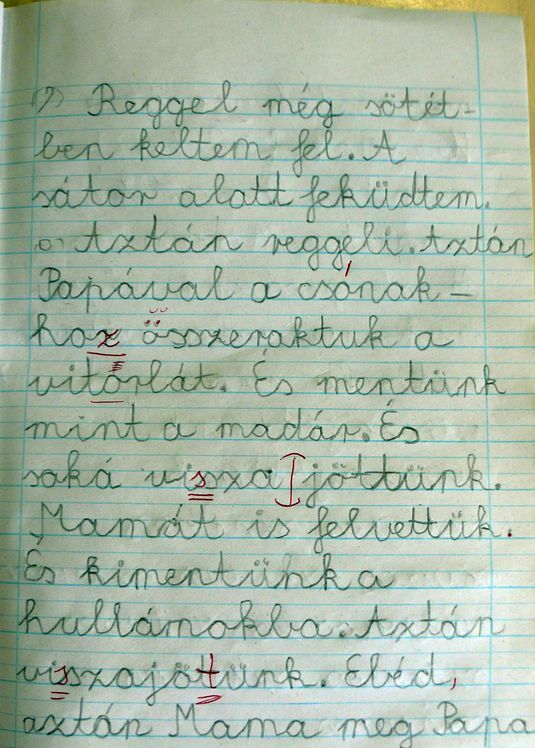 Reggel még sötét-
ben keltem fel. A
sátor alatt feküdtem.
Aztán reggeli. Aztán
Papával a csónak-
hoz összeraktuk a
vitorlát. És mentünk
mint a madár. És
saká vissza jöttünk.
Mamát is felvettük.
És kimentünk a
hullámokba. Aztán
visszajöttünk. Ebéd,
aztán Mama meg Papa